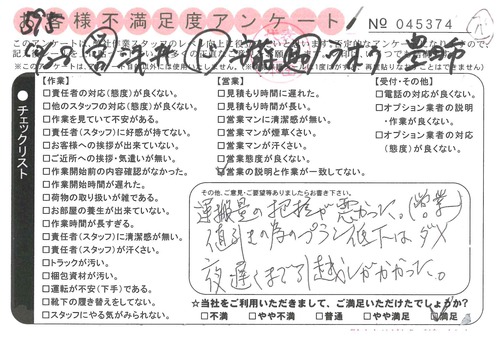 お客様不満足度アンケート
No 045374
豊田市
チェックリスト
【作業】
□責任者の対応(態度)が良くない。
□他のスタッフの対応(態度)が良くない。
□作業を見ていて不安がある。
□責任者(スタッフ)に好感が持てない。
□お客様への挨拶が出来ていない。
□ご近所への挨拶・気遣いが無い。
□作業開始前の内容確認がなかった。
□作業開始時間が遅れた。
□荷物の取り扱いが雑である。
□お部屋の養生が出来ていない。
□作業時間が長すぎる。
□責任者(スタッフ)に清潔感が無い。
□責任者(スタッフ)が汗くさい。
□トラックが汚い。
□梱包資材が汚い。
□運転が不安(下手)である。
□靴下の履き替えをしてない。
□スタッフにやる気がみられない。
【営業】
□見積もり時間に遅れた。
□見積もり時間が長い。
□営業マンに清潔感が無い。
□営業マンが煙草くさい。
□営業マンが汗くさい。
□営業態度が良くない。
営業の説明と作業が一致してない。
【受付・その他】
□電話の対応が良くない。
□オプション業者の説明
・作業が良くない。
□オプション業者の対応
(態度)が良くない。
その他、ご意見・ご要望等ありましたらお書き下さい。
運搬量の把握が悪かった。(営業)
値引きの為のプラン低下はダメ
夜遅くまで引越しがかかった。
☆当社をご利用いただきまして、ご満足いただけたでしょうか?
□不満 □やや不満 □普通 □やや満足 □満足